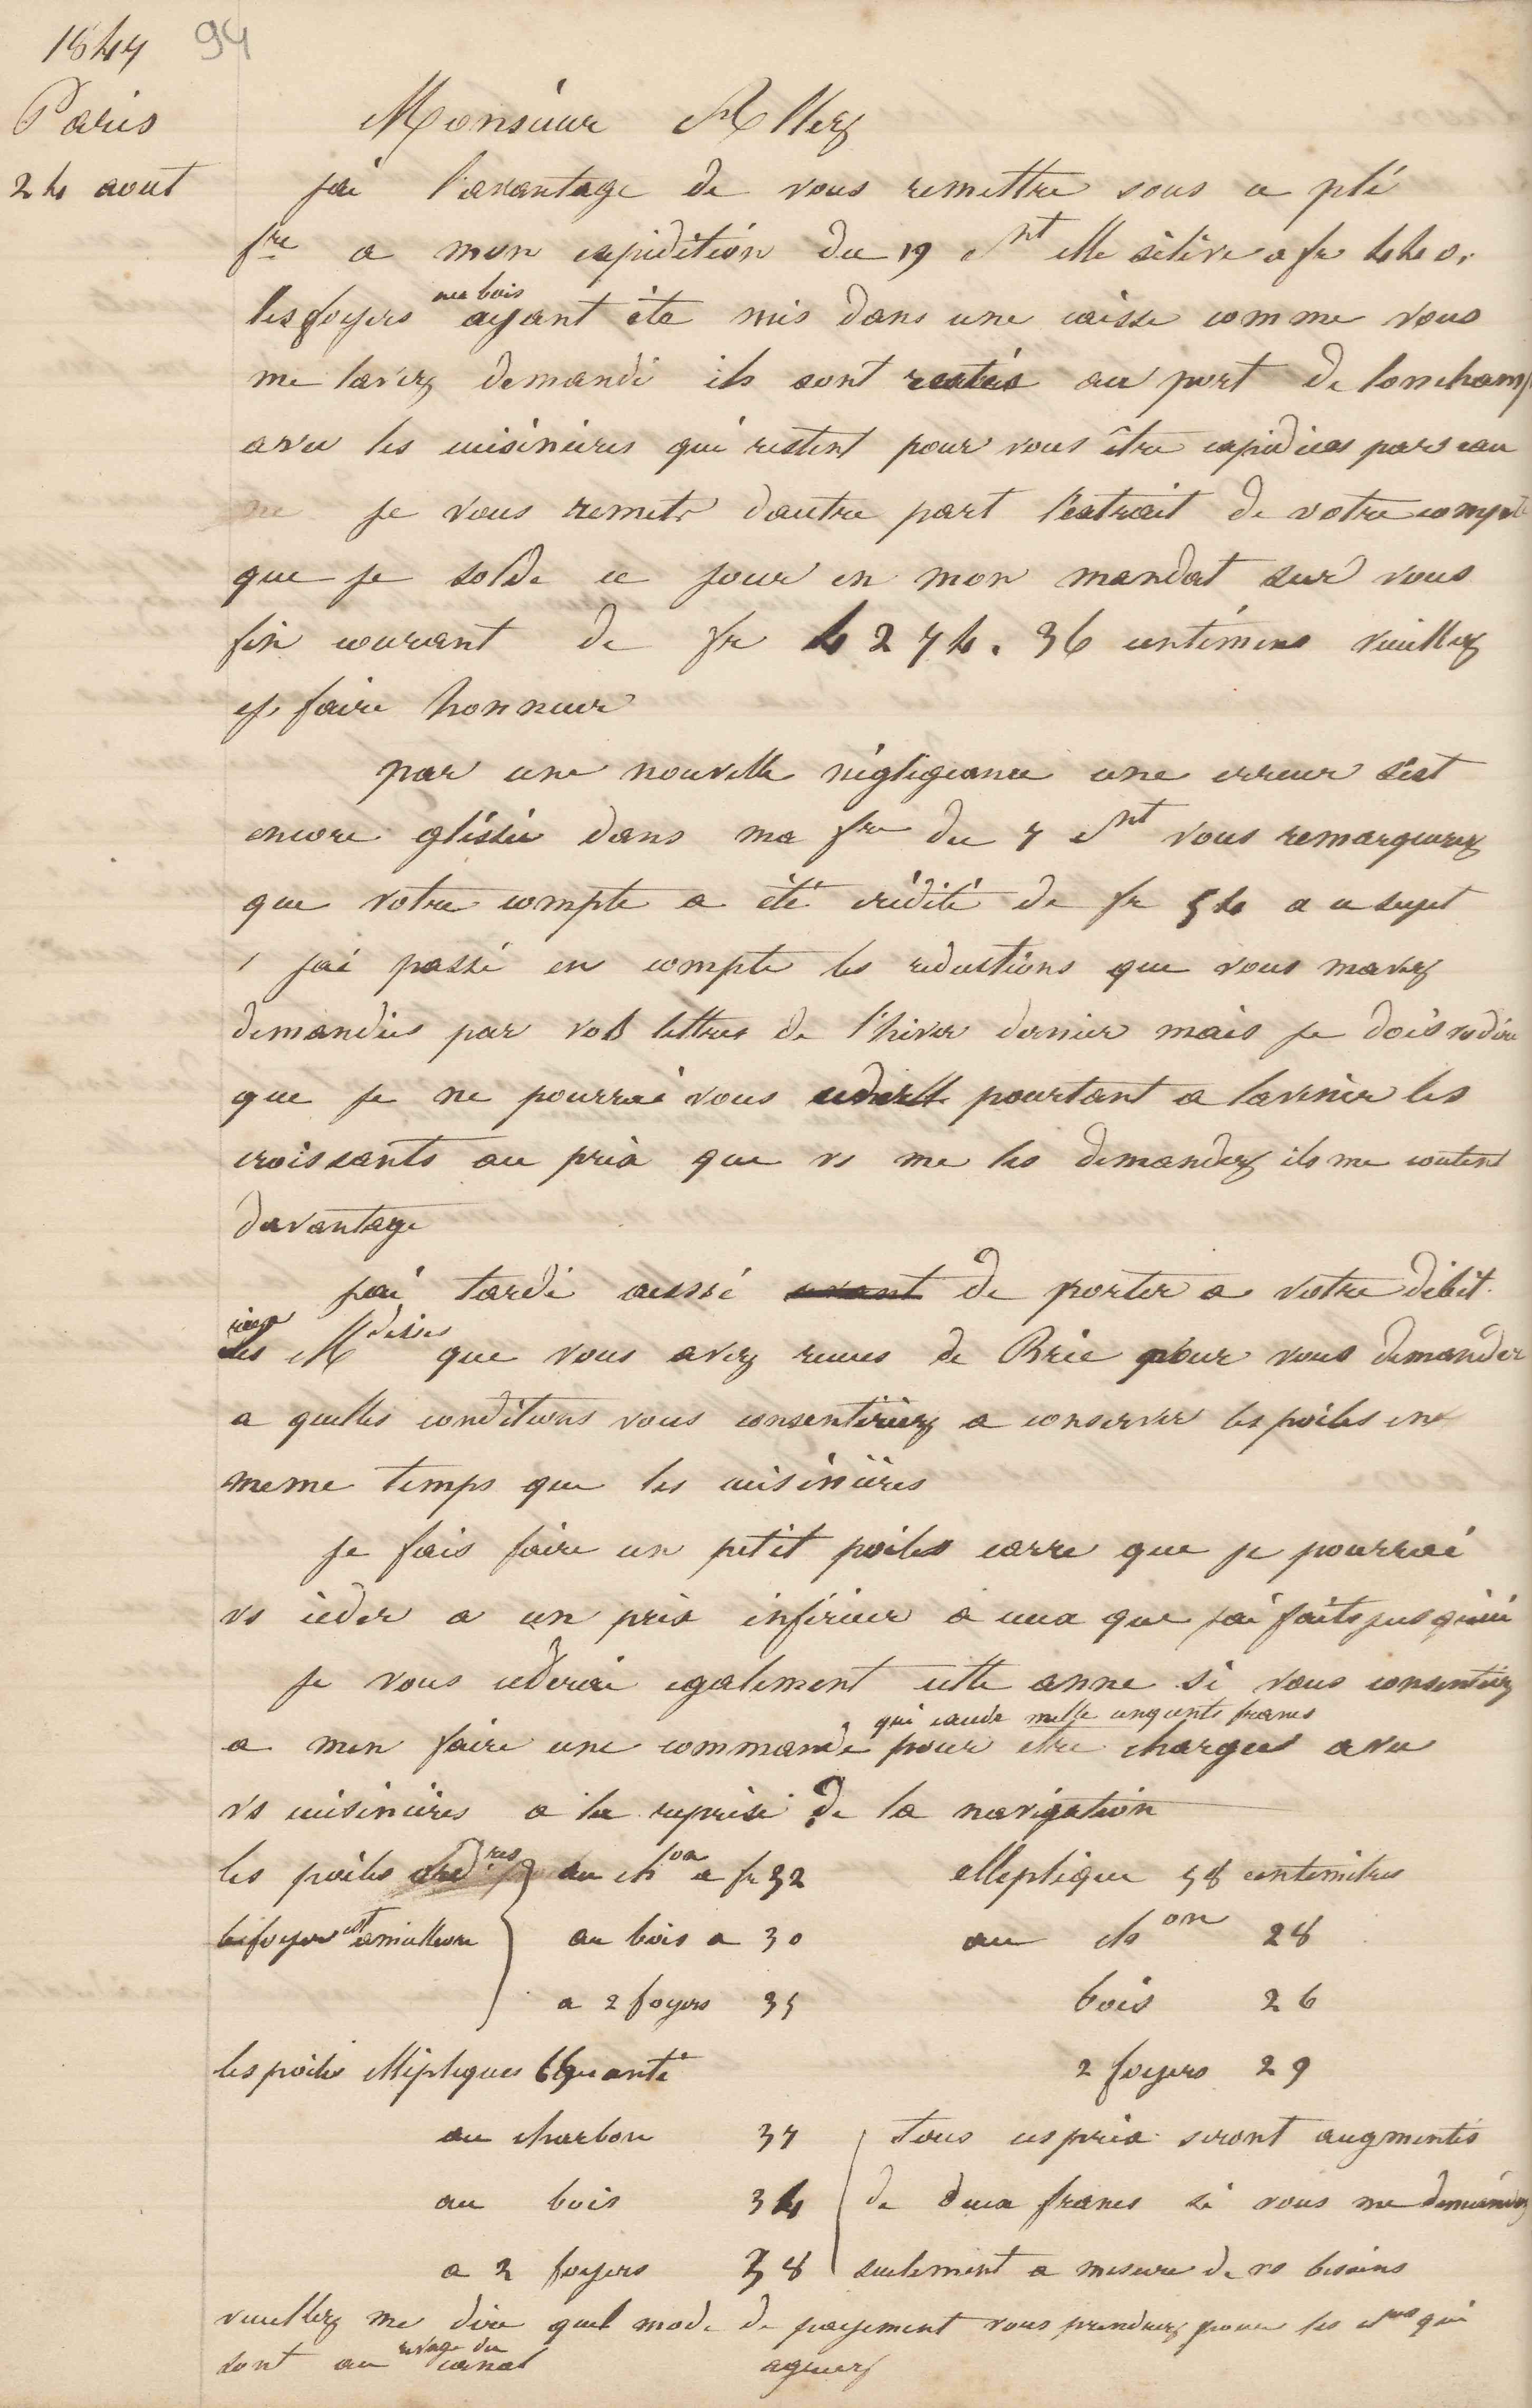 1847 94
Paris
24 aout
Monsieur Allez
jai l'avantage de vous remettre sous ce pli
fre a mon expédition du 19 ct elle sélève a fr 440.
les foyers au bois ayant été mis dans une caisse comme vous
me lavez demandé ils sont restés au port de lonchamp
avec les cuisinières qui restent pour vous être expédiées par eau
je vous remets dautre part l'extrait de votre compte
que je solde ce jour en mon mandat sur vous
fin courant de fr 4274.36 centimens veuillez
y faire honneur
par une nouvelle négligeance une erreur s'est
encore glissée dans ma fre du 7 ct vous remarquerez
que votre compte a été crédité de fr 54 a ce sujet
jai passé en compte les réductions que vous mavez
demandées par vos lettres de l'hiver dernier mais je dois vs dire
que je ne pourrai vous pourtant a lavenir les
croissants au prix que vs me les demandez ils me coutent
davantage
jai tardé aussi de porter a votre débit
les Mdises que vous avez reçues de Brie pour vous demander
a quelles conditions vous consentiriez a conserver les poiles en
meme temps que les cuisinières
je fais faire un petit poiles carre que je pourrai
vs céder a un prix inférieur a ceux que jai faits jusquici
je vous céderai egalement cette anne si vous consentiez
a men faire une commande qui excede mille cinq cents francs pour etre chargee avec
vs cuisinières a la reprise de la navigation
les poiles ordres au chon a fr 32 elleptique 58 centimetres
le foyer est amelliore au bois a 30 au chon 28
a 2 foyers 35 bois 26
les poiles elliptiques 2 foyers 29
au charbon 37 tous ces prix seront augmentés
au bois 34 de deux francs si vous me demandez
a 2 foyers 38 seulement a mesure de vs besoins
veuillez me dire quel mode de payement vous prendrez pour les qui
sont au rivage du canal agreez